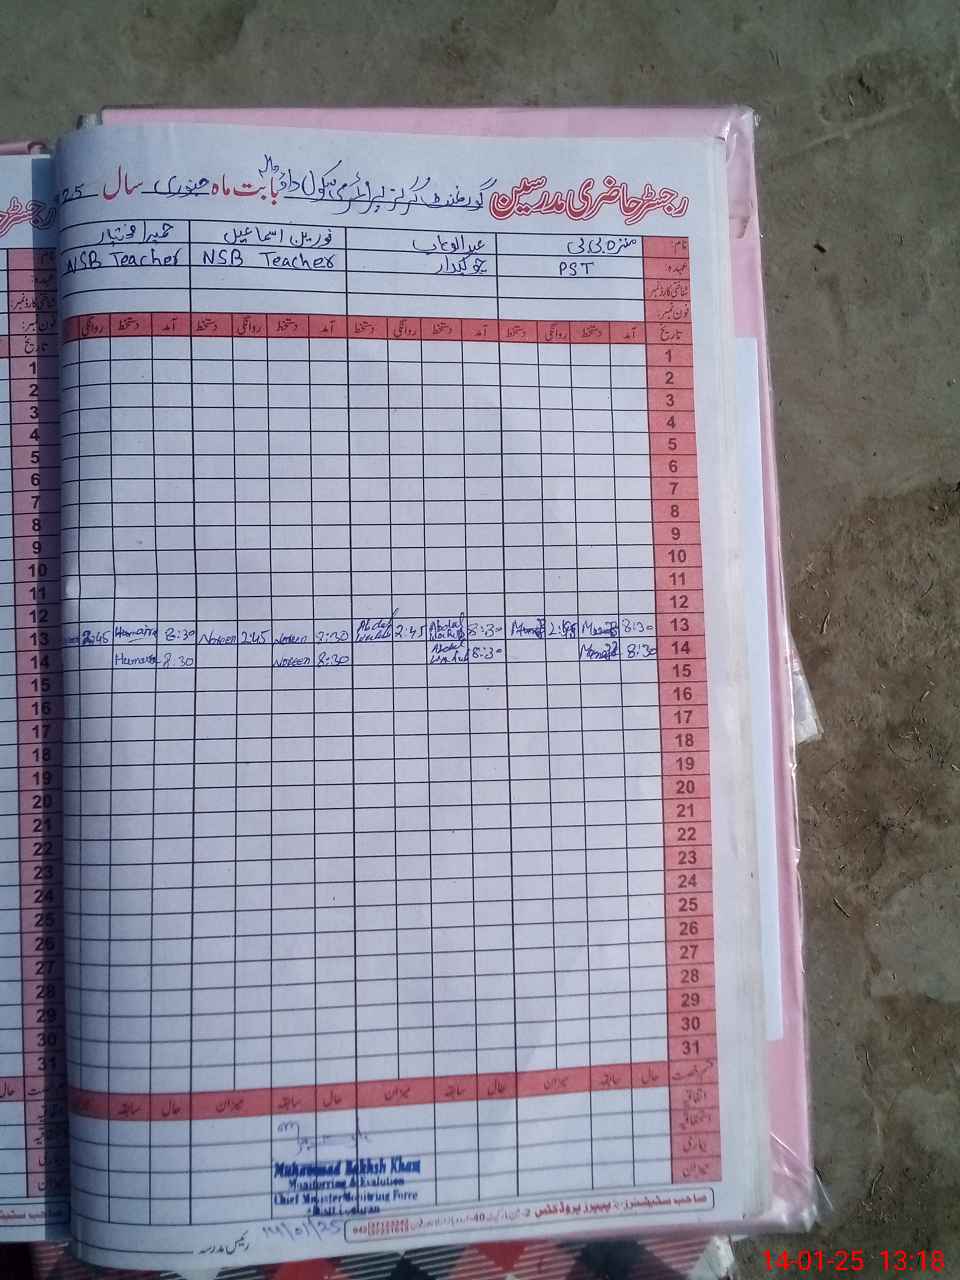 رجسٹر حاضری مدرسین گورنمنٹ گرلز پرائمری سکول داد بابت ماہ جنوری سال 025
نام: منزہ بی بی عبدالوہاب نورین اسماعیل حمیرا
عہدہ: PST چوکیدار NSB Teacher NSB Teacher
شناختی کارڈ نمبر:
فون نمبر:
تاریخ آمد دستخط روانگی دستخط آمد دستخط روانگی دستخط آمد دستخط روانگی دستخط آمد دستخط روانگی
1
2
3
4
5
6
7
8
9
10
11
12
13 8:30 2:45 8:30 Abdul Wahab 2:45 Abdul Wahab 8:30 Noreen 2:45 Noreen 8:30 Humaira 2:45
14 8:30 8:30 Abdul Wahab 8:30 Noreen 8:30 Humaira
15
16
17
18
19
20
21
22
23
24
25
26
27
28
29
30
31
قسم رخصت حال سابقہ میزان حال سابقہ میزان حال سابقہ میزان حال سابقہ میزان
اتفاقیہ
استحقاقیہ
بیماری
میزان
Muhammad Bakhsh Khan
Monitorring & Evalution
Chief Minister Monitring Force
14/01/25
رئیس مدرسہ
صاحب سٹیشنرز پیپرز پروڈکٹس
14-01-25 13:18